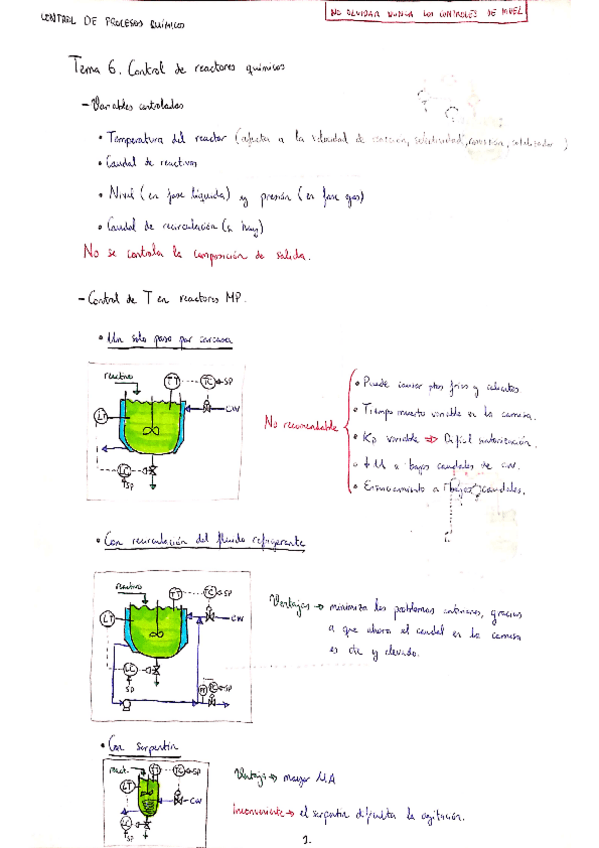 CONTROL DE PROCESOS QUÍMICOS
NO OLVIDAR NUNCA LOS CONTROLES DE NIVEL
Tema 6. Control de reactores químicos
- Variables controladas
• Temperatura del reactor (afecta a la velocidad de reacción, selectividad, corrosión, catalizador)
• Caudal de reactivos
• Nivel (en fase líquida) y presión (en fase gas)
• Caudal de recirculación (si hay)
No se controla la composición de salida.
- Control de T en reactores MP.
• Un solo paso por carcasa
reactivo
TT
TC
SP
LT
CW
LC
SP
No recomendable
• Puede haber ptos fríos y calientes.
• Tiempo muerto variable en la camisa.
• Kp variable ⇒ Difícil sintonización.
• ↓ U a bajos caudales de cw.
• Ensuciamiento a "bajos" caudales.
• Con recirculación del fluido refrigerante
reactivo
TT
TC
SP
LT
CW
LC
SP
SP
Ventajas → minimiza los problemas anteriores, gracias
a que ahora el caudal en la camisa
es cte y elevado.
• Con serpentín
react.
TT
TC
SP
LT
CW
LC
SP
Ventaja → mayor U.A
Inconveniente → el serpentín dificulta la agitación.
1.